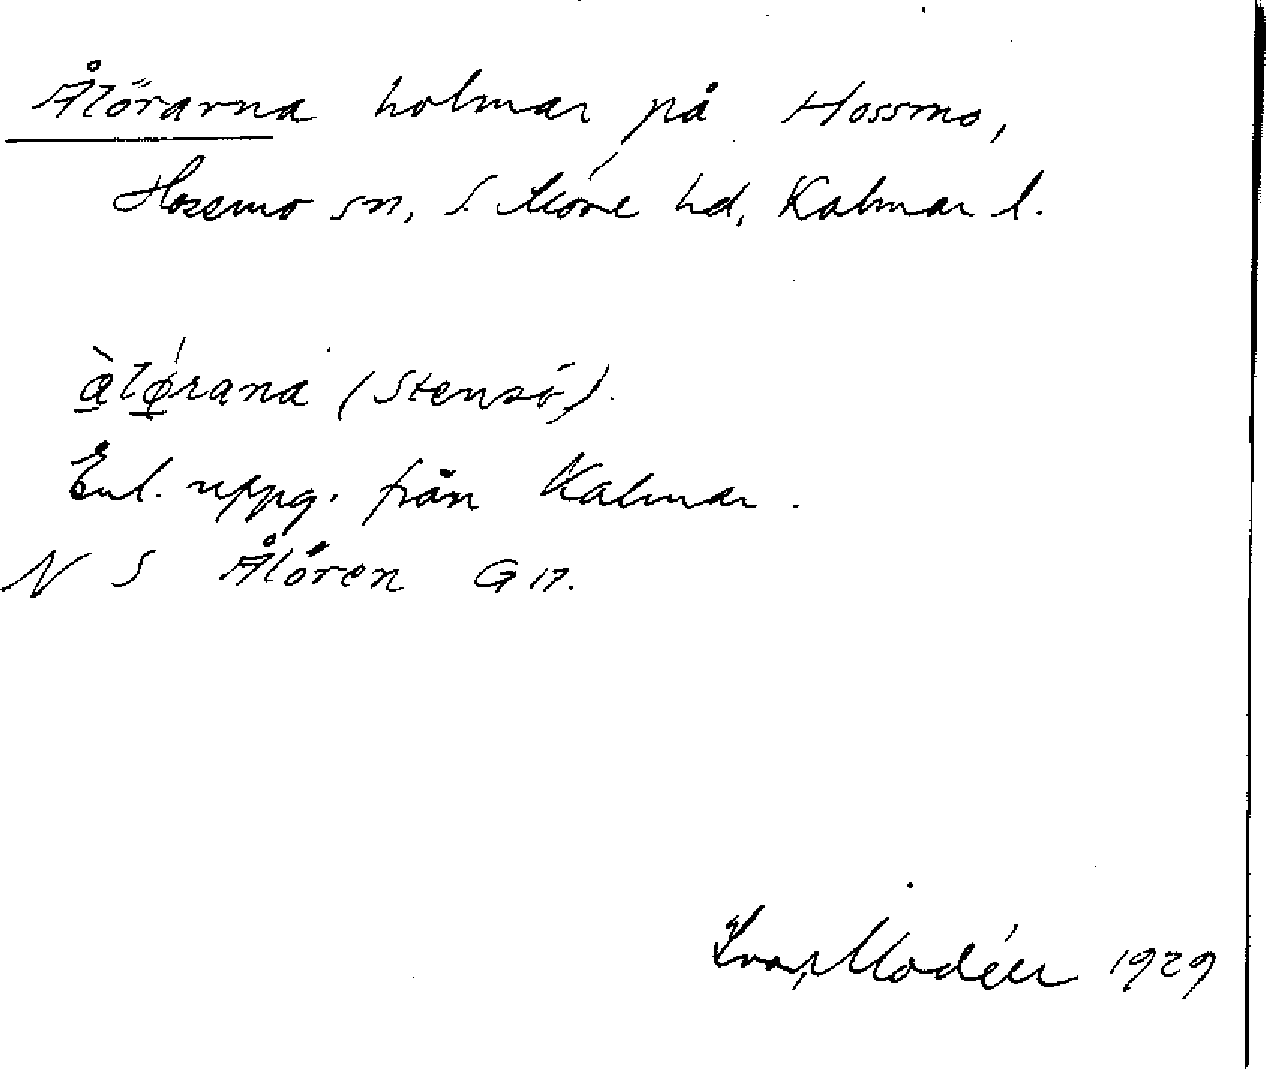 Ålörarna holmar på Hossmo,
Hossmo sn, S. Möre hd, Kalmar l.
(Stensö).
Enl. uppg. från Kalmar.
N S Ålören G 17.
Ivar Modéer 1929